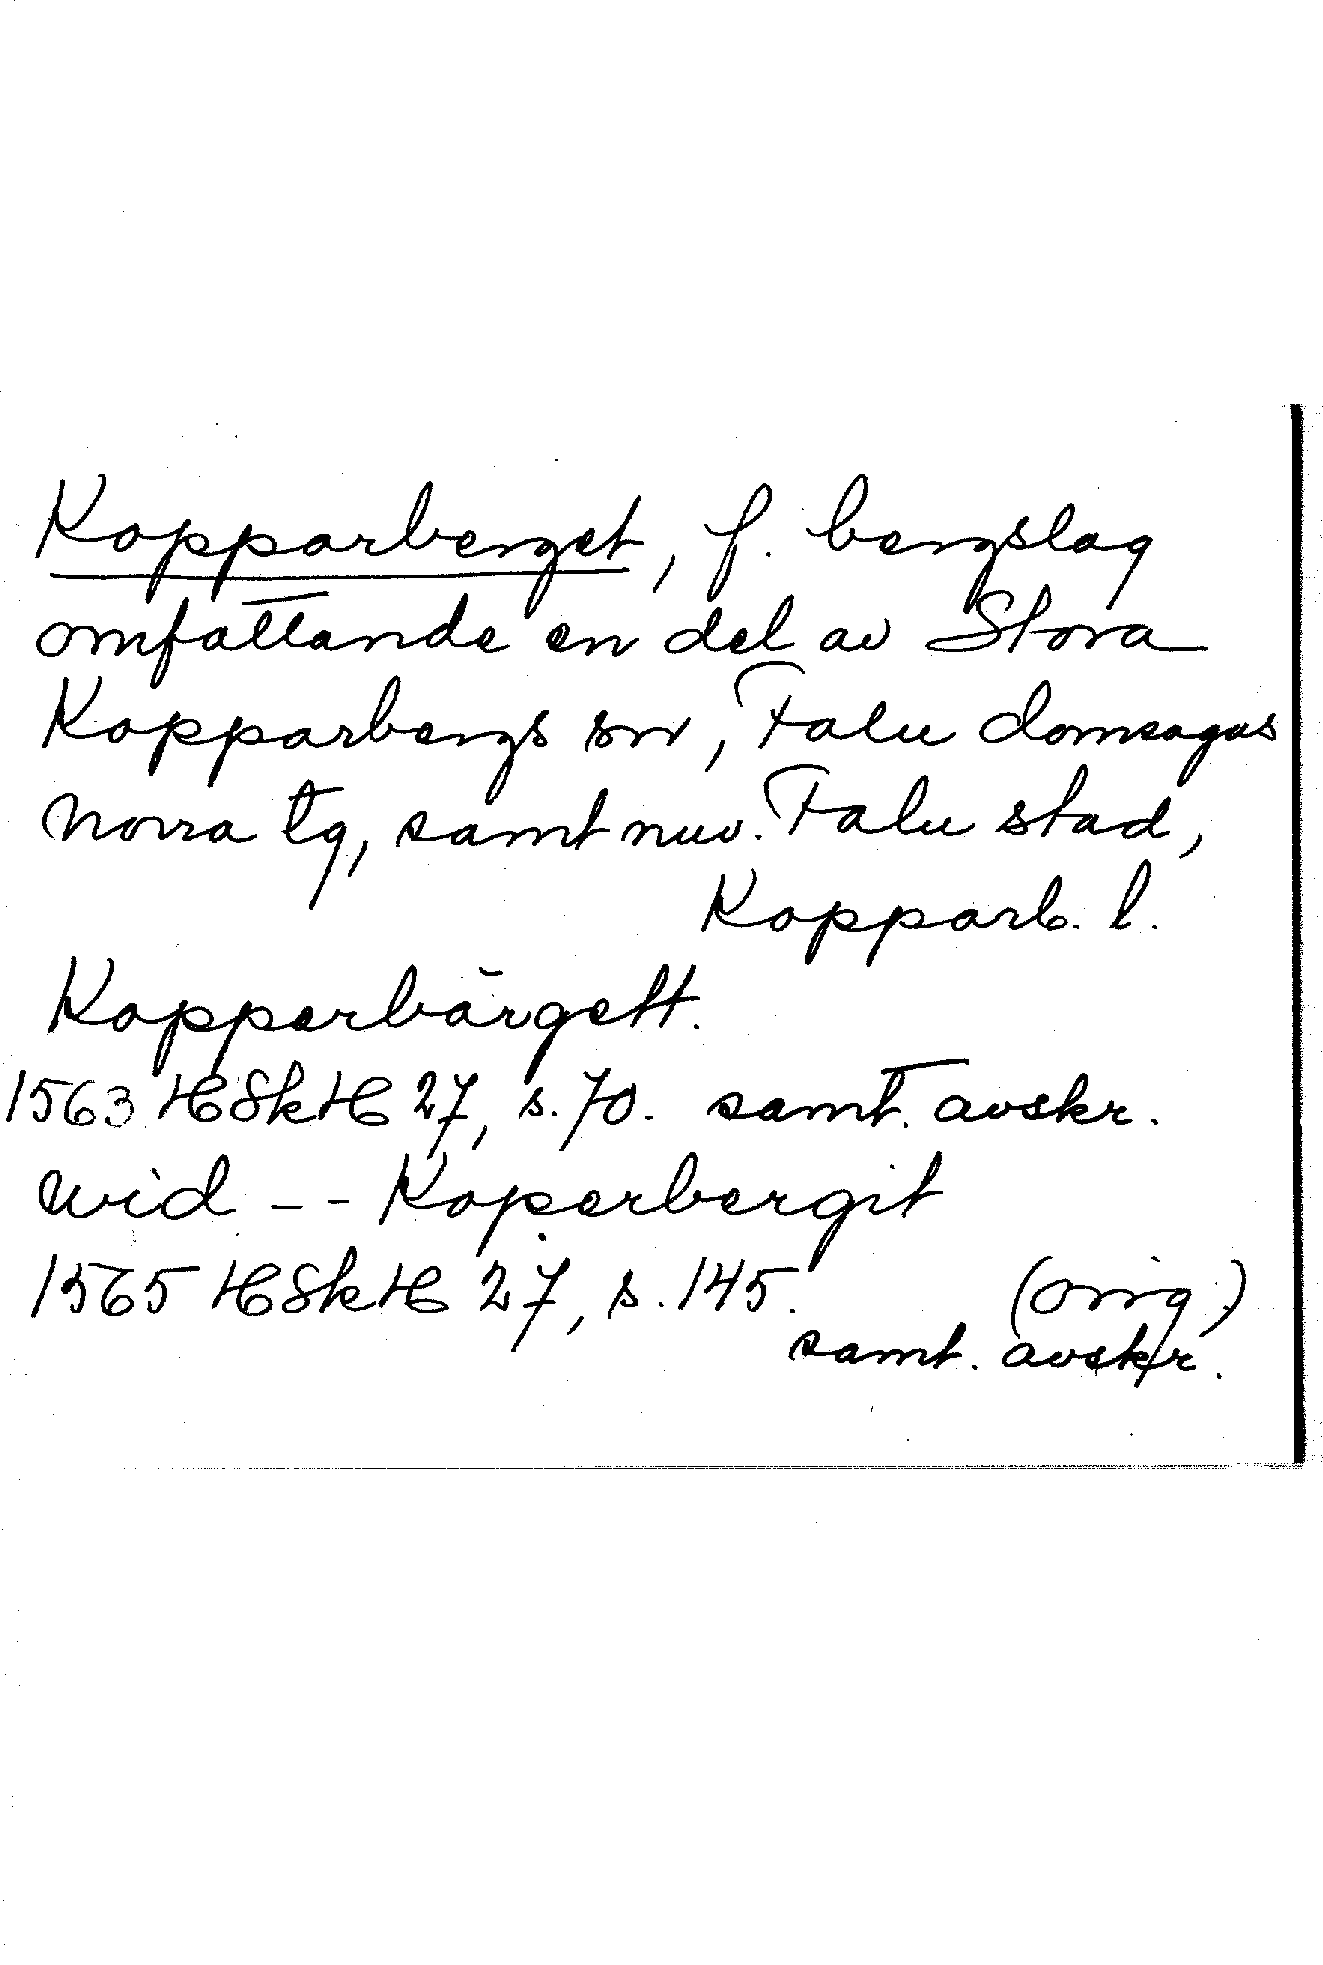 Kopparberget, f. bergslag
omfattande en del av Stora
Kopparbergs sn, Falu domsagas
norra tg, samt nuv. Falu stad,
Kopparb. l.
Kopperbärgett.
1563 HSkH 27, s. 70. samt. avskr.
wid -- Koperbergit
1565 HSkH 27, s. 145. (orig.)
samt. avskr.